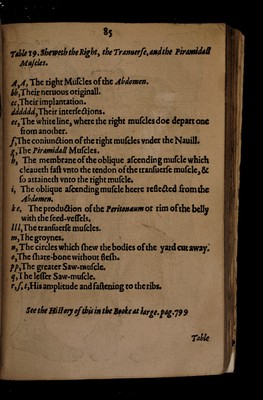 85
Table 19. Sheweth the Right, the Tranuerse, and the Piramidall
Muscles.
A,A, The right Muscles of the Abdomen.
bb, Their neruous originall.
cc, Their implantation.
dddddd, Their intersections.
ee, The white line, where the right muscles doe depart one
from another.
f, The coniunction of the right muscles vnder the Nauill.
g, The Piramidall Muscles.
h, The membrane of the oblique ascending muscle which
cleaueth fast vnto the tendon of the transuerse muscle, &
so attaineth vnto the right muscle.
i, The oblique ascending muscle heere reflected from the
Abdomen.
kk, The production of the Peritonaeum or rim of the belly
with the seed-vessels.
lll, The transuerse muscles.
m, The groynes.
n, The circles which shew the bodies of the yard cut away.
o, The share-bone without flesh.
pp, The greater Saw-muscle.
q, The lesser Saw-muscle.
r,s,t, His amplitude and fastening to the ribs.
See the History of this in the Booke at large. pag. 799
Table